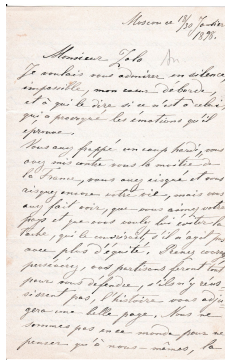 Moscou ce 18/30 Janvier
1898.
Monsieur Zola
Je voulais vous admirer en silence,
impossible, mon cœur déborde,
et à qui le dire si ce n'est à celui
qui a provoqué les émotions qu'il
éprouve.
Vous avez frappé un coup hardi, vous
avez mis contre vous la moitié de
la France, vous avez risqué et vous
risquez encore votre vie, mais vous
avez fait voir, que vous aimez votre
pays et que vous voulez lui ôter la
tache, qui le
avec plus d'équité. Prenez courage
persévérez, vos partisans feront tout
pour vous défendre, s'ils n'y réus-
sissent pas, l'histoire vous adju-
gera une belle page. Nous ne
sommes pas en ce monde pour ne
penser qu'à nous-mêmes, la